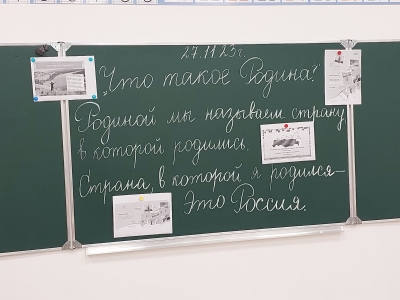 27.11.23г.
„Что такое Родина?"
Родиной мы называем страну
в которой родились.
Страна, в которой я родился –
Это Россия.